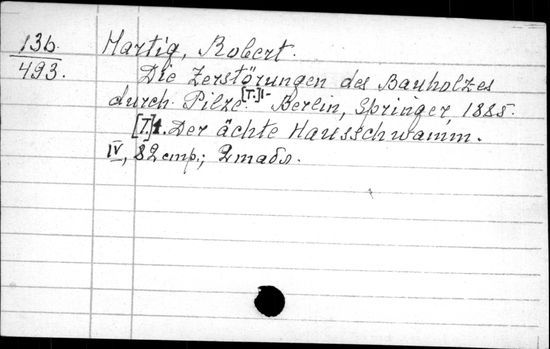 136. Hartig, Robert.
493. Die Zerstörungen des Bauholzes
durch Pilze. [T.] 1- Berlin, Springer, 1885.
[T.] 1. Der ächte Hausschwamm.
IV, 82 стр.; 2 табл.